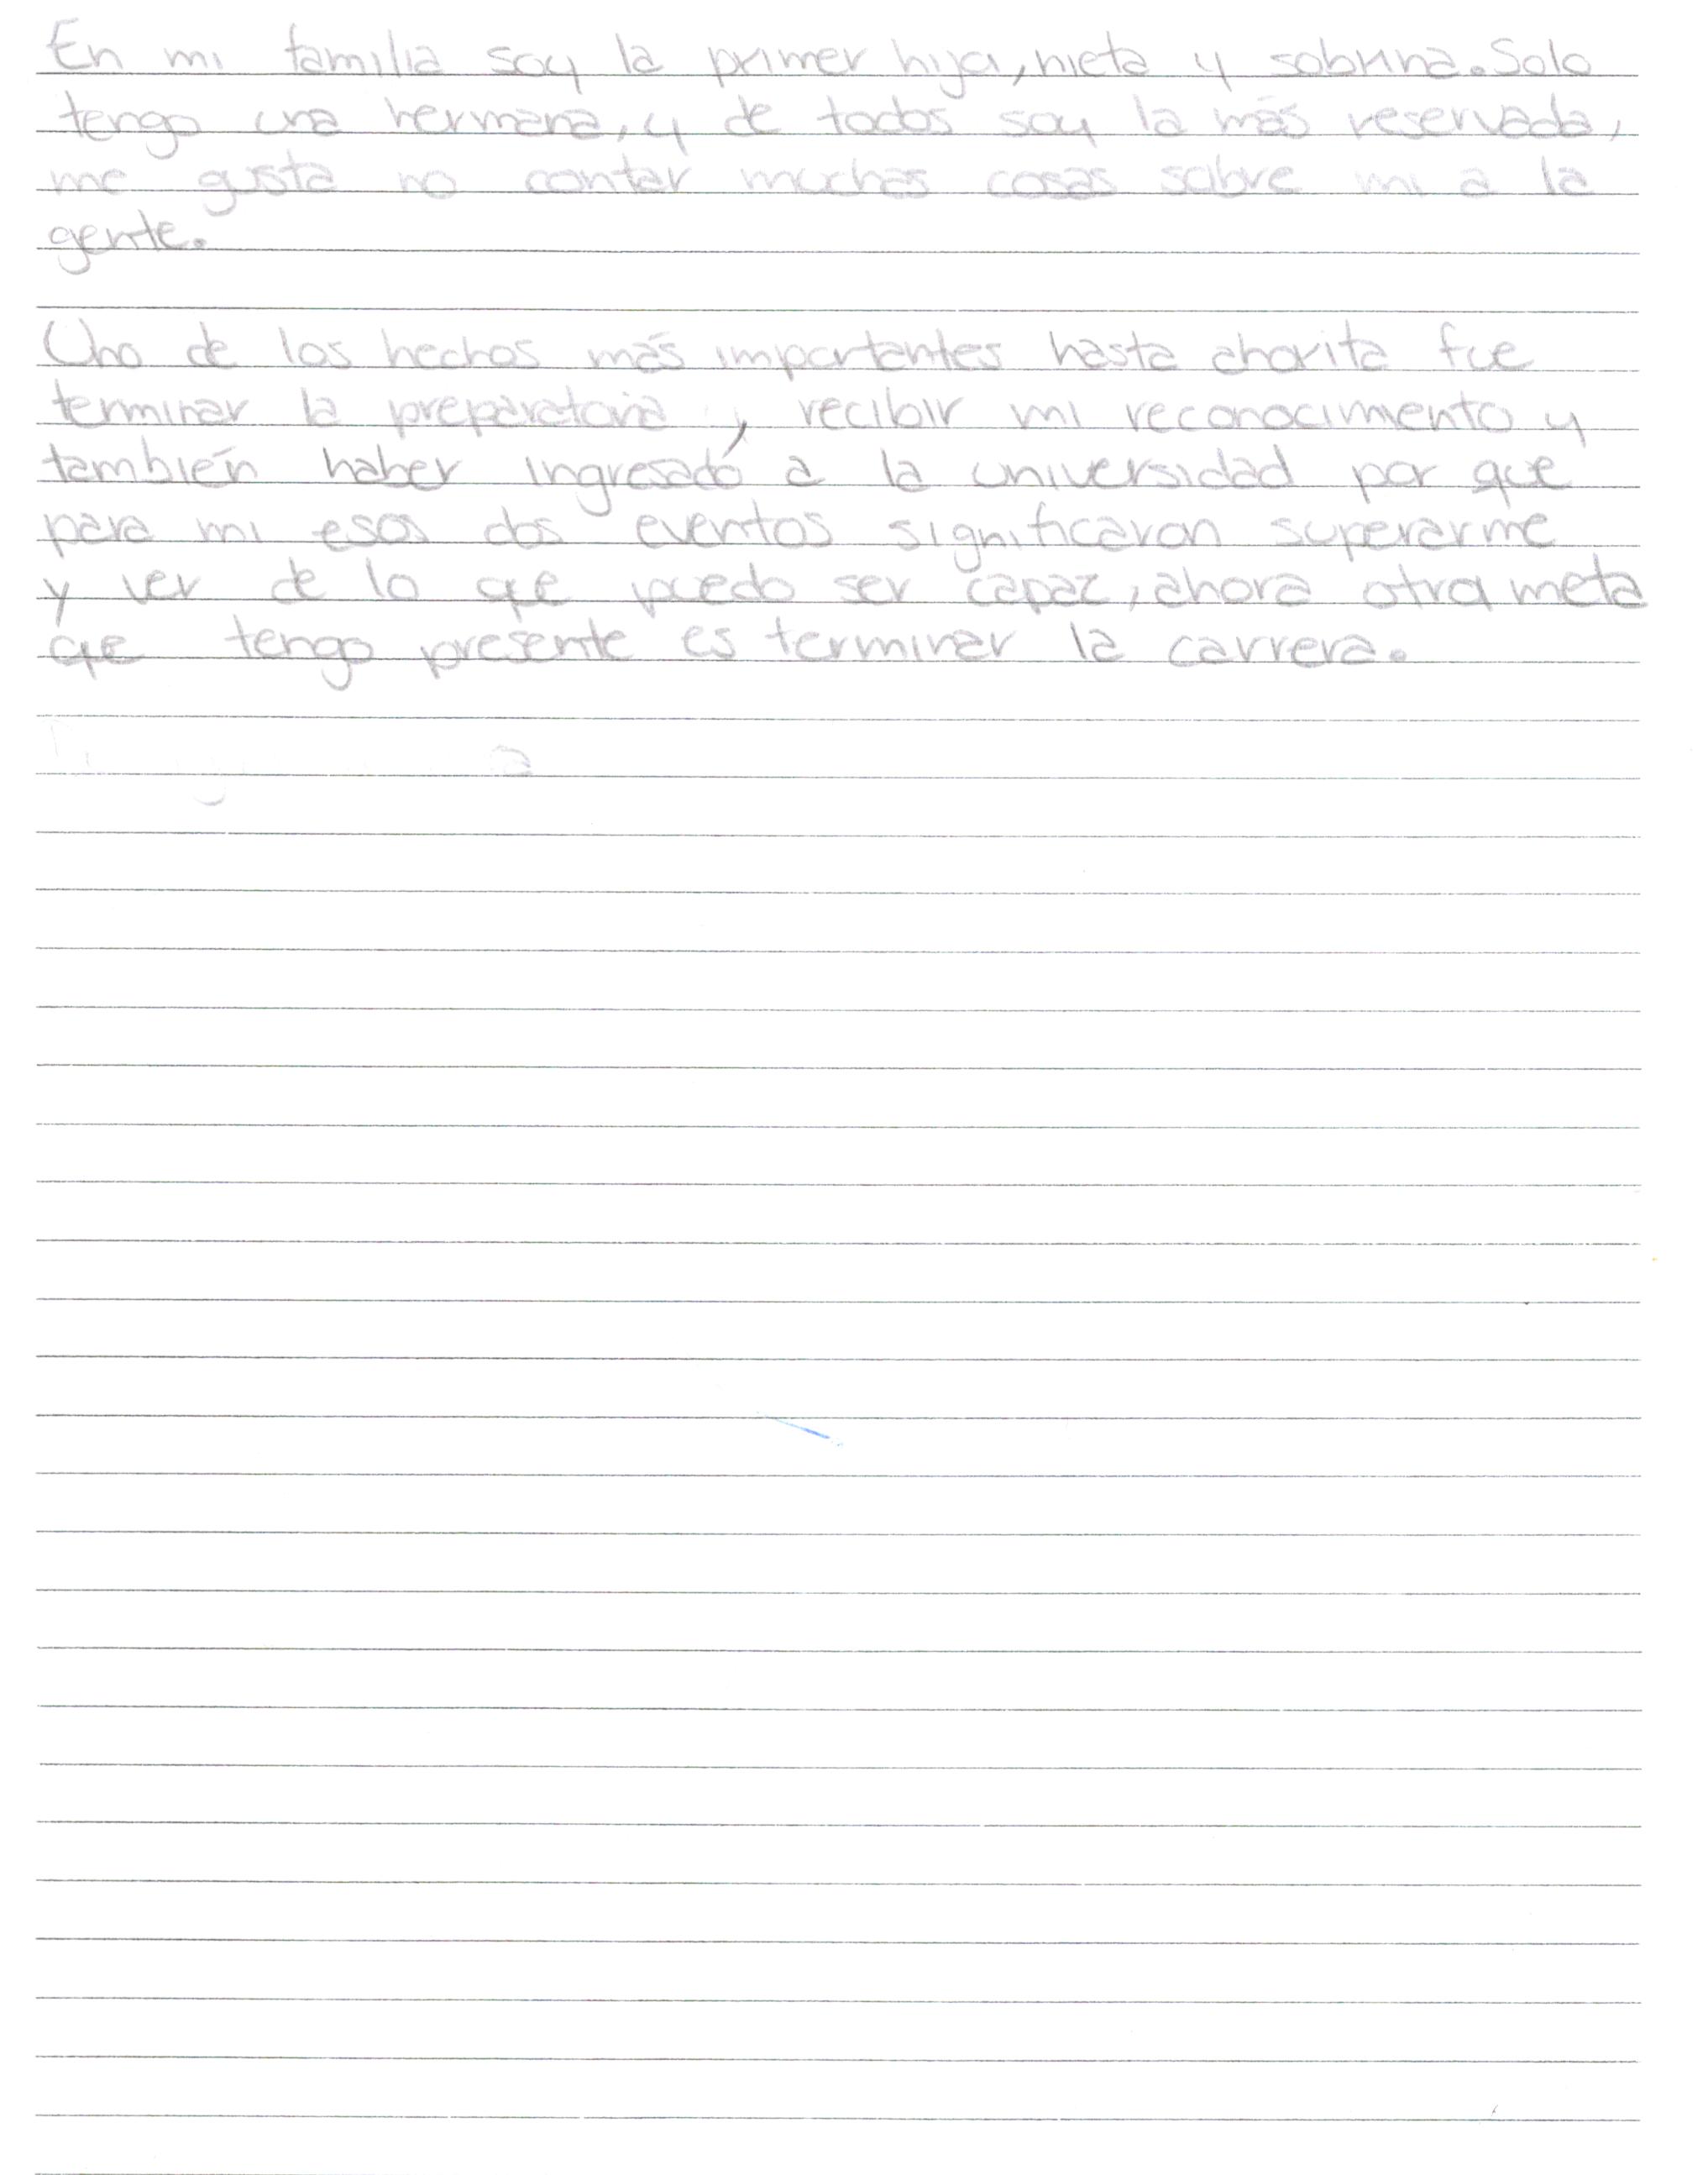 En mi familia soy la primer hija, nieta y sobrina. Solo
tengo una hermana, y de todos soy la más reservada,
me gusta no contar muchas cosas sobre mi a la
gente.
Uno de los hechos más importantes hasta ahorita fue
terminar la preparatoria, recibir mi reconocimento y
también haber ingresadó a la universidad por que
para mi esos dos eventos significaron superarme
y ver de lo que puedo ser capaz, ahora otra meta
que tengo presente es terminar la carrera.